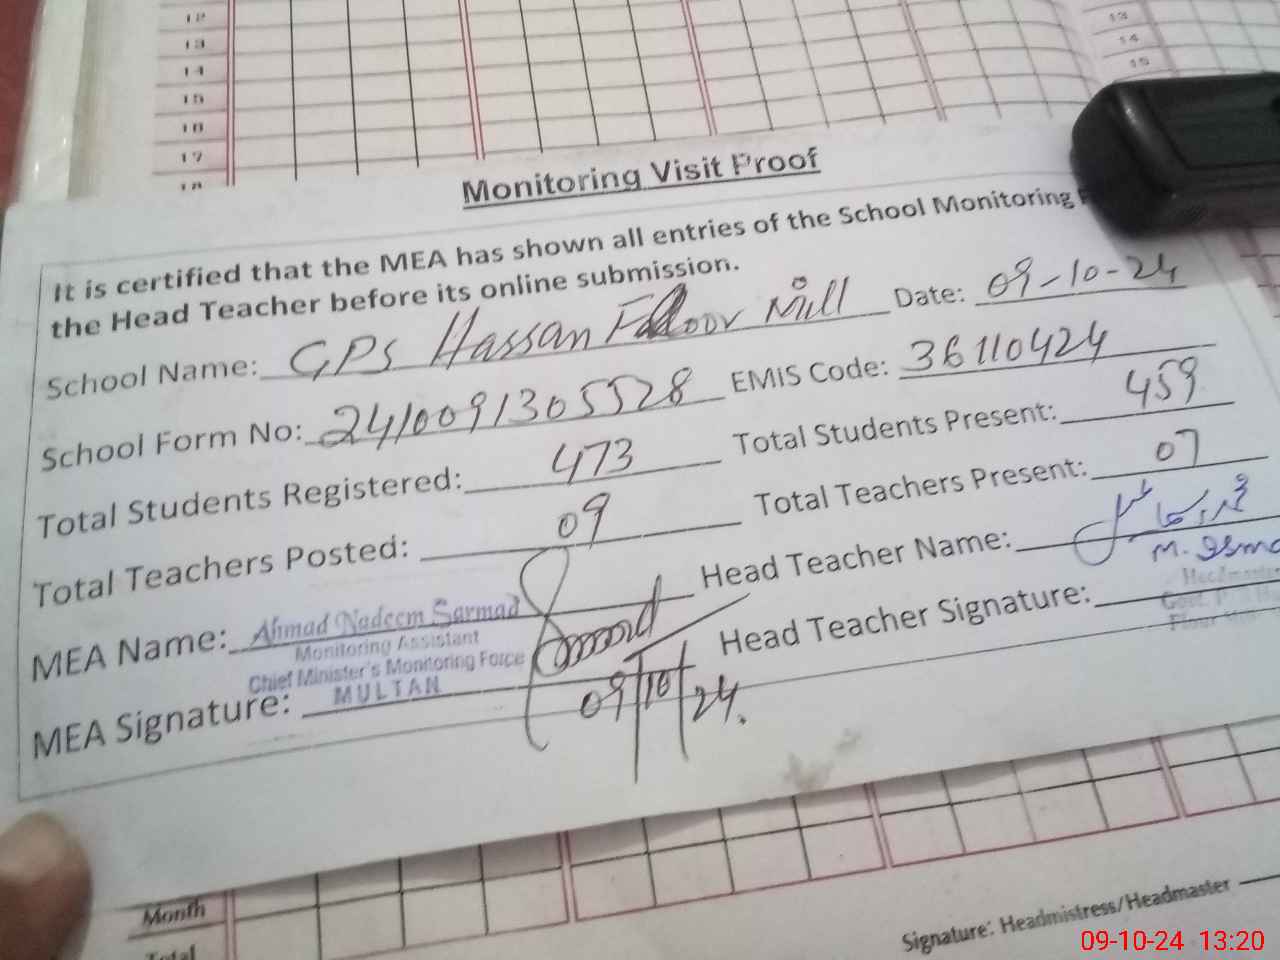 12
13
14
15
16
17
18
13
14
15
Monitoring Visit Proof
It is certified that the MEA has shown all entries of the School Monitoring
the Head Teacher before its online submission.
School Name: GPS Hassan Floor Mill Date: 09-10-24
School Form No: 241009130 5528 EMIS Code: 36110424
Total Students Registered: 473 Total Students Present: 459
Total Teachers Posted: 09 Total Teachers Present: 07
MEA Name: Ahmad Nadeem Sarmad Head Teacher Name:
M. Isma
Monitoring Assistant
Chief Minister's Monitoring Force
MULTAN
MEA Signature: 09/10/24. Head Teacher Signature:
Headmaster
Govt.
Flour
Month
Total
Signature: Headmistress/Headmaster
09-10-24 13:20